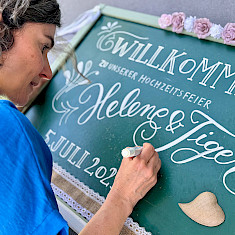 WILLKOMM
ZU UNSERER HOCHZEITSFEIER
Helene & Tige
5. JULI 202